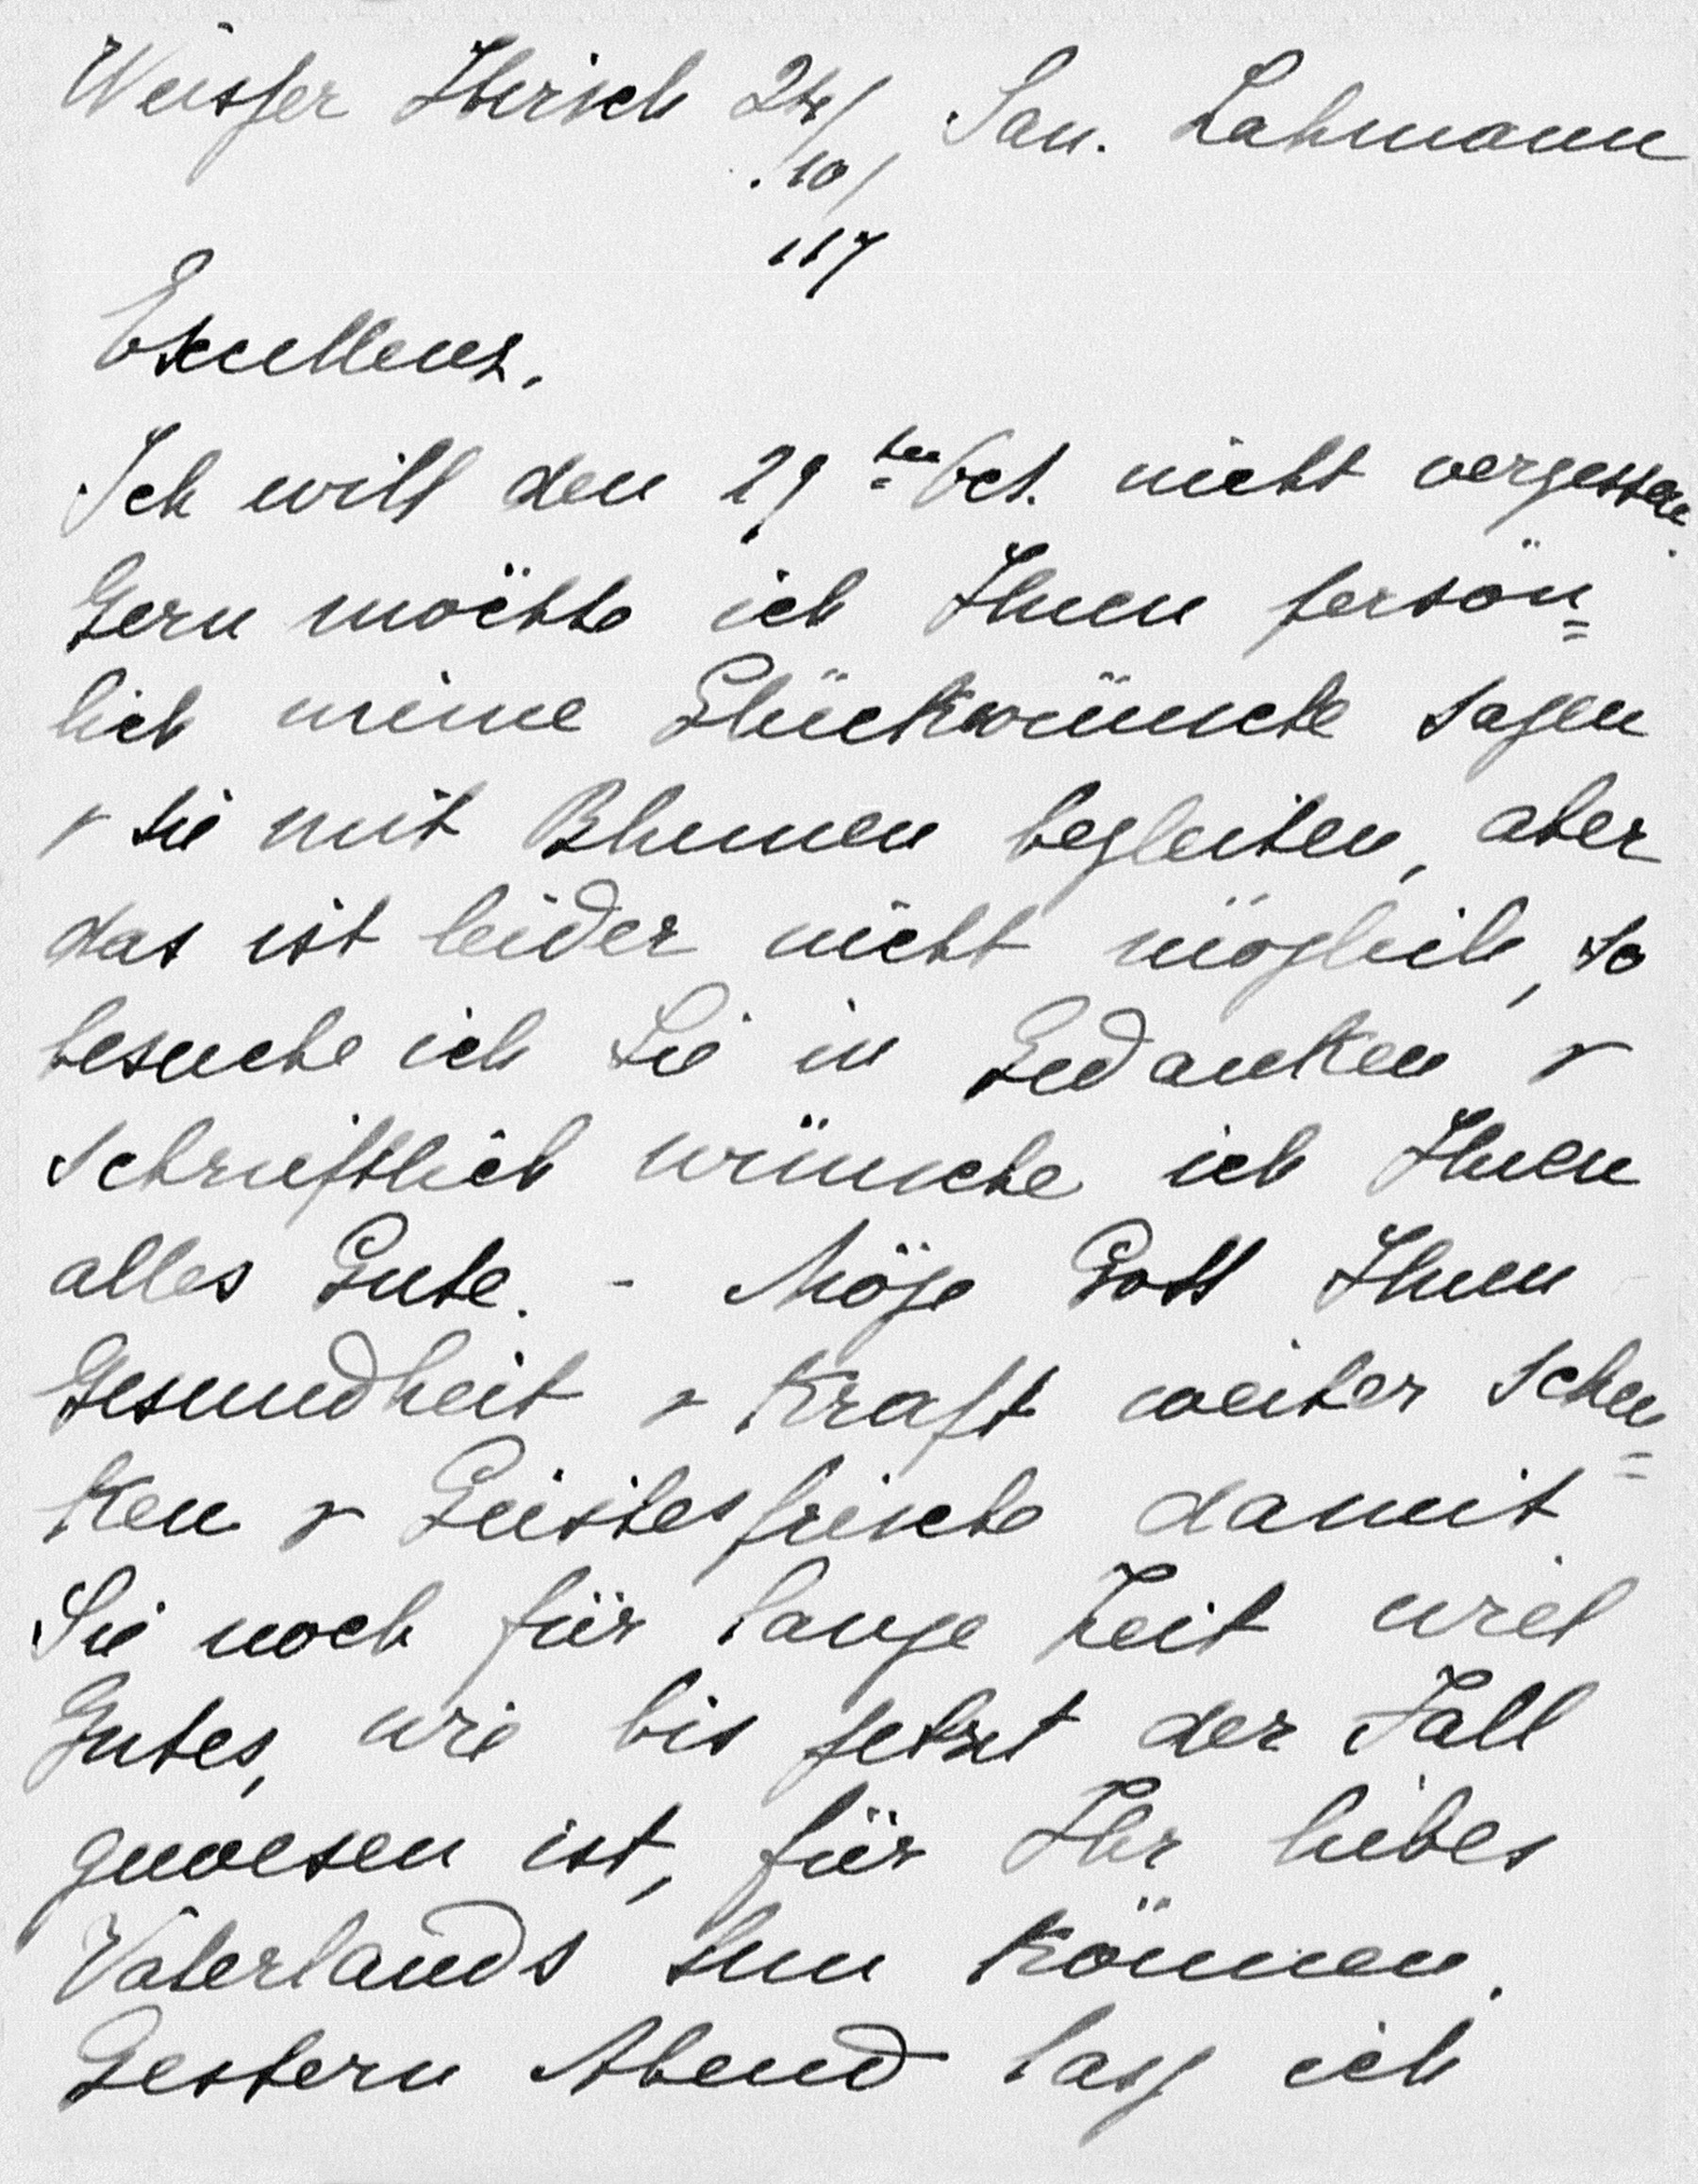 Weisser Hirsch 24/ San. Lahmann
10/
17
Excellenz.
Ich will den 29ten Oct. nicht vergessen.
Gern möchte ich Ihnen persön=
lich meine Glückwünsche sagen
& sie mit Blumen begleiten, aber
das ist leider nicht möglich, so
besuche ich Sie in Gedanken &
schriftlich wünsche ich Ihnen
alles Gute. - Möge Gott Ihnen
Gesundheit & Kraft weiter schen=
ken & Geistesfrische damit
Sie noch für lange Zeit viel
Gutes, wie bis jetzt der Fall
gewesen ist, für Ihr liebes
Vaterlands tun können.
Gestern Abend lass ich